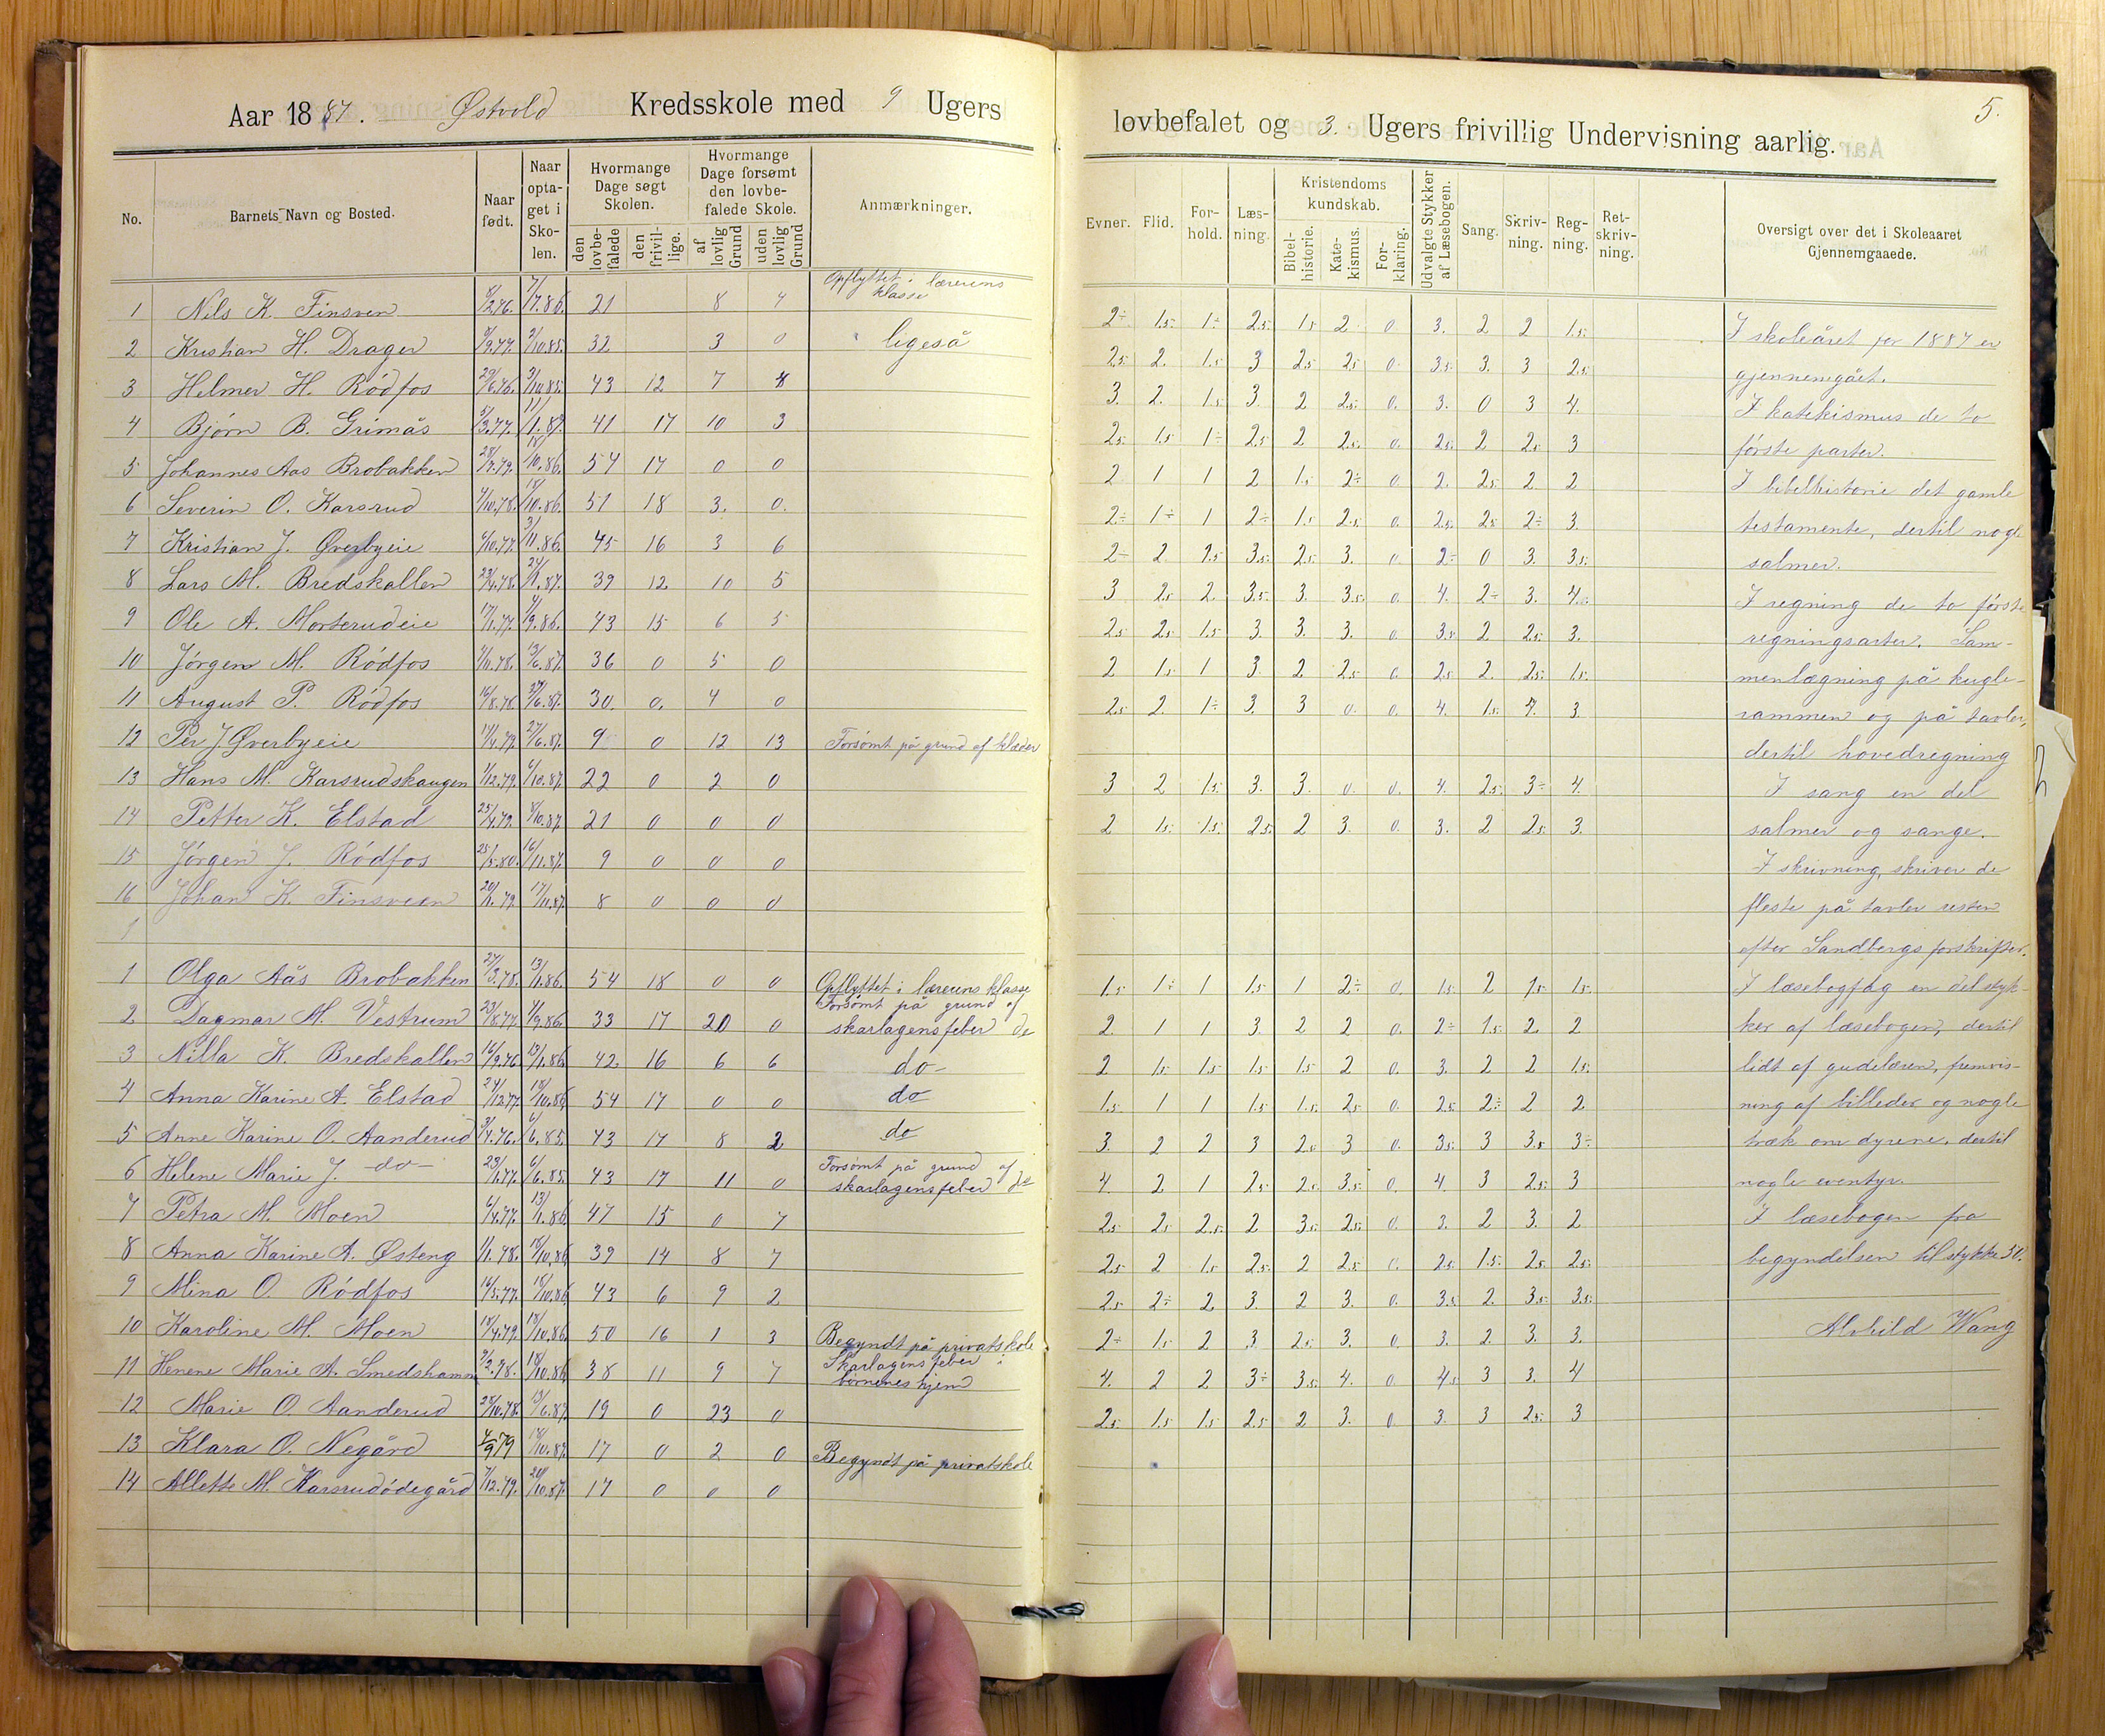 Aar 1887. Østvold Kredsskole med 9 Ugers
No. Barnets Navn og Bosted. Naar født. Naar optaget i Skolen. Hvormange Dage søgt Skolen. den lovbefalede den frivillige. Hvormange Dage forsømt den lovbefalede Skole. af lovlig Grund uden lovlig Grund Anmærkninger.
1 Nils K. Finsven 21 8 4 Opflyttet i lærerens klasse
2 Kristian H. Drager 32 3 0 " ligeså
3 Helmer H. Rødfos 29/6.76. 3/10.85. 43 12 7 8
4 Bjørn B. Grimås 5/3.77. 11/1.87. 41 17 10 3
5 Johannes Aas Brobakken 18/10.86. 54 17 0 0
6 Severin O. Karsrud 4/10.78. 18/10.86. 51 18 3. 0.
7 Kristian J. Øverbyeie 6/10.77. 3/11.86. 45 16 3 6
8 Lars M. Bredskallen 24/1.87. 39 12 10 5
9 Ole A. Morterudeie 17/1.77. 4/9.86. 43 15 6 5
10 Jørgen M. Rødfos 13/6.87. 36 0 5 0
11 August P. Rødfos 16/8.78. 27/6.87. 30. 0. 4 0
12 Per J. Øverbyeie 17/4.79. 27/6.87. 9 0 12 13 Forsømt på grund af klæder
13 Hans M. Karsrudskaugen 1/12.79. 6/10.87. 22 0 2 0
14 Petter K. Elstad 25/4.79. 8/10.87. 21 0 0 0
15 Jørgen J. Rødfos 25/5.80. 16/11.87. 9 0 0 0
16 Johan K. Finsveen 20/1.79. 17/11.87. 8 0 0 0
1
1 Olga Aås Brobakken 27/3.78. 13/1.86. 54 18 0 0 Opflyttet i lærerens klasse
2 Dagmar M. Vestrum 23/8.77. 4/9.86. 33 17 20 0 Forsømt på grund af skarlagensfeber do
3 Nilla K. Bredskallen 16/9.76. 13/1.86. 42 16 6 6 do-
4 Anna Karine A. Elstad 24/12.77. 18/10.86. 54 17 0 0 do
5 Anne Karine O. Aanderud 3/4.76. 6/6.85. 43 17 8 2 do
6 Helene Marie J. -do- 23/1.77. 6/6.85. 43 17 11 0 Forsømt på grund af skarlagensfeber do
7 Petra M. Moen 6/4.77. 13/1.86. 47 15 0 7
8 Anna Karine A. Østeng 1/1.78. 18/10.86. 39 14 8 7
9 Mina O. Rødfos 16/5.77. 18/10.86. 43 6 9 2
10 Karoline M. Moen 18/4.79. 18/10.86. 50 16 1 3 Begyndt på privatskole
11 Henene Marie A. Smedshamm 18/10.86. 38 11 9 7 Skarlagensfeber i børnenes hjem
12 Marie O. Aanderud 28/10.78. 13/6.87. 19 0 23 0
13 Klara O. Negård 4/9 79 18/10.87. 17 0 2 0 Begyndt på privatskole
14 Allette M. Karsrudødegård 7/12.79. 20/10.87. 17 0 0 0
5.
lovbefalet og 3. Ugers frivillig Undervisning aarlig.
Evner. Flid. Forhold. Læsning. Kristendomskundskab. Bibelhistorie. Katekismus. Forklaring. Udvalgte Stykker af Læsebogen. Sang. Skrivning. Regning. Retskrivning. Oversigt over det i Skoleaaret Gjennemgaaede.
2÷ 1.5. 1÷ 2.5. 1.5 2 0 3. 2 2 1.5.
2.5 2. 1.5 3 2.5 2.5 0. 3.5. 3. 3 2.5.
3. 2. 1.5 3. 2 2.5. 0. 3. 0 3 4.
2.5 1.5 1÷ 2.5 2 2.5. 0. 2.5. 2 2.5 3
2 1 1 2 1.5 2÷ 0 2. 2.5 2 2
2÷ 1÷ 1 2÷ 1.5 2.5 0. 2.5. 2.5 2÷ 3
2÷ 2 2.5 3.5. 2.5 3. 0 2÷ 0 3. 3.5.
3 2.5 2. 3.5. 3. 3.5. 0. 4. 2÷ 3. 4.
2.5 2.5 1.5 3. 3. 3. 0 3.5 2 2.5 3.
2 1.5 1 3 2 2.5 0. 2.5 2. 2.5. 1.5.
2.5 2. 1÷ 3. 3 0 0. 4. 1.5. 4. 3
3 2 1.5. 3. 3. 0. 0. 4. 2.5. 3÷ 4.
2 1.5. 1.5. 2.5. 2 3. 0. 3. 2 2.5 3.
1.5 1÷ 1 1.5 1 2÷ 0. 1.5 2 1.5 1.5.
2. 1 1 3. 2 2 0. 2÷ 1.5 2. 2
2 1.5 1.5 1.5 1.5 2 0. 3. 2 2 1.5.
1.5. 1 1 1.5 1.5. 2.5 0. 2.5 2÷ 2 2
3. 2 2 3 2.5 3 0. 3.5. 3 3.5 3÷
4. 2 1 2.5 2.5 3.5. 0. 4. 3 2.5. 3
2.5 2.5 2.5. 2 3.5. 2.5. 0. 3. 2 3. 2
2.5 2 1.5 2.5. 2 2.5 0. 2.5 1.5. 2.5 2.5.
2.5 2÷ 2. 3 2 3. 0. 3.5 2. 3.5. 3.5.
2÷ 1.5 2 3 2.5 3. 0 3. 2 3. 3.
4. 2 2 3÷ 3.5. 4. 0. 4.5 3 3. 4
2.5 1.5 1.5 2.5 2 3. 0. 3. 3 2.5. 3
I skoleåret for 1887 er
gjennemgået.
I katekismus de to
første parter.
I bibelhistorie det gamle
testamente, dertil nogle
salmer.
I regning de to første
regningsarter. Sam-
menlægning på kugle-
rammen og på tavler,
dertil hovedregning
I sang en del
salmer og sange.
I skrivning, skriver de
fleste på tavler resten
efter Sandbergs forskrifter.
I læsebogfag en del styk-
ker af læsebogen, dertil
lidt af gudelæren, fremvis-
ning af billeder og nogle
træk om dyrene, dertil
nogle eventyr.
I læsebogen fra
begyndelsen til stykke 50.
Alvhild Wang